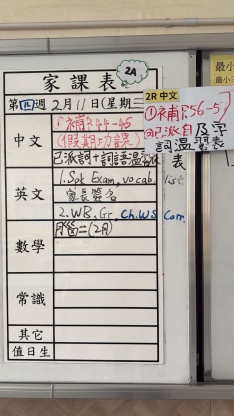 家課表
2A
第四週 2月11日(星期三
中文
補P.44-45
(假期功課)
已派詞+詞語溫
英文
1.Spk Exam, vocab list
家長簽名
2.WB, Gr, Ch.WS Com.
數學
常識
其它
值日生
2R 中文
①補P.56-57
②已派自及字
詞溫習表
最小
最小三